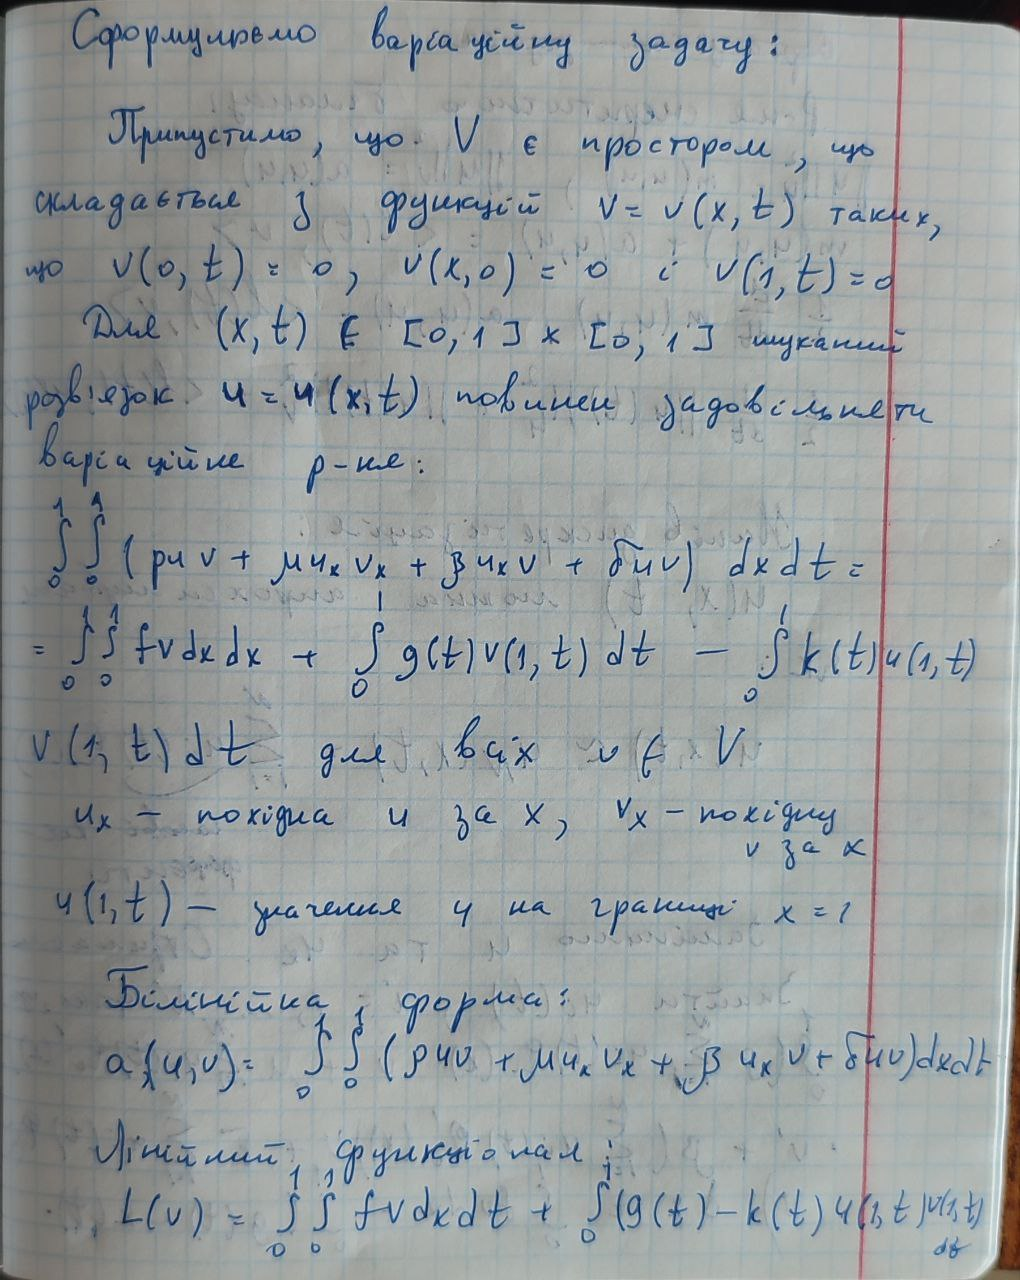 Сформулюємо варіаційну задачу:
Припустимо, що V є простором, що
складається з функцій v = v(x, t) таких,
що v(0, t) = 0, v(x, 0) = 0 і v(1, t) = 0
Для (x, t) ∈ [0, 1] × [0, 1] шуканий
розв'язок u = u(x, t) повинен задовільняти
варіаційне р-ня:
∫₀¹ ∫₀¹ (ρuv + μuₓvₓ + βuₓv + δuv) dxdt =
= ∫₀¹ ∫₀¹ fv dx dx + ∫₀¹ g(t)v(1, t) dt − ∫₀¹ k(t)u(1, t)
v(1, t) dt для всіх v ∈ V
uₓ – похідна u за x, vₓ – похідну
v за x
u(1, t) – значення u на границі x = 1
Білінійка форма:
a(u, v) = ∫₀¹ ∫₀¹ (ρuv + μuₓvₓ + βuₓv + δuv) dxdt
Лінійний функціонал:
L(v) = ∫₀¹ ∫₀¹ fv dxdt + ∫₀¹ (g(t) − k(t)u(1, t)v(1, t)
dt